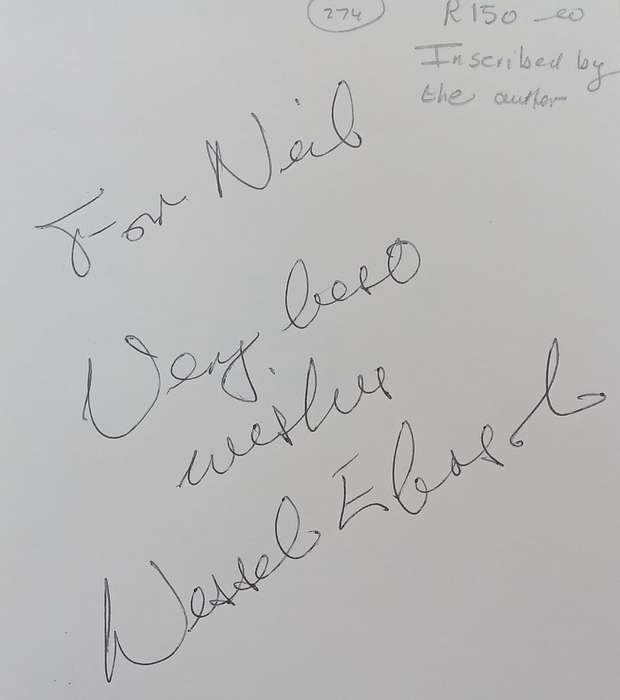 274
R150-00
Inscribed by
the author
For Neil
Very best
wishes
Wessel Ebersohn